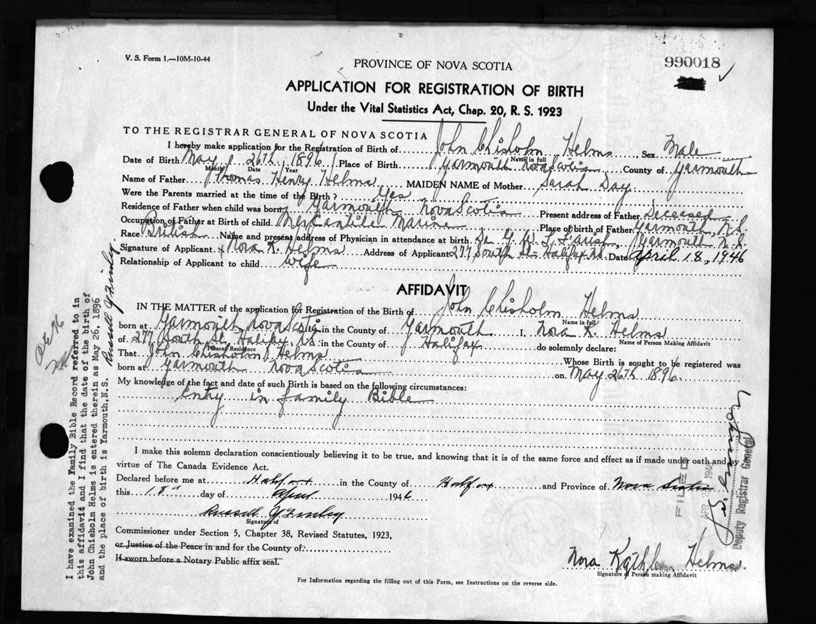 V. S. Form 1.—10M-10-44
PROVINCE OF NOVA SCOTIA
990018
APPLICATION FOR REGISTRATION OF BIRTH
Under the Vital Statistics Act, Chap. 20, R. S. 1923
TO THE REGISTRAR GENERAL OF NOVA SCOTIA
I hereby make application for the Registration of Birth of John Chisholm Helms Sex Male
Name in full
Date of Birth May 26th 1896 Place of Birth Yarmouth Nova Scotia County of Yarmouth
Month Date Year
Name of Father Thomas Henry Helms MAIDEN NAME of Mother Sarah Day
Were the Parents married at time of the Birth? Yes
Residence of Father when child was born Yarmouth Nova Scotia Present address of Father Deceased
Occupation of Father at Birth of child Mercantile Marine Place of birth of Father Yarmouth N.S.
Race British Name and present address of Physician in attendance at birth Yarmouth N.S.
Signature of Applicant Nora K. Helms Address of Applicant 277 South St. Halifax N.S. Date April 18, 1946
Relationship of Applicant to child wife
AFFIDAVIT
IN THE MATTER of the application for Registration of the Birth of John Chisholm Helms
Name in full
born at Yarmouth Nova Scotia in the County of Yarmouth I, Nora K. Helms
Name of Person Making Affidavit
of 277 South St. Halifax N.S. in the County of Halifax do solemnly declare:
Personal Residence
That John Chisholm Helms Whose Birth is sought to be registered was
born at Yarmouth Nova Scotia on May 26th 1896
My knowledge of the fact and date of such Birth is based on the following circumstances:
Entry in family Bible
I make this solemn declaration conscientiously believing it to be true, and knowing that it is of the same force and effect as if made under oath and by
virtue of The Canada Evidence Act.
Declared before me at Halifax in the County of Halifax and Province of Nova Scotia
this 18th day of April 1946
Russell
Signature of
Commissioner under Section 5, Chapter 38, Revised Statutes, 1923,
or Justice of the Peace in and for the County of:
If sworn before a Notary Public affix seal.
Nora Kathleen Helms
Signature of Person making Affidavit
For Information regarding the filling out of this Form, see Instructions on the reverse side.
I have examined the Family Bible Record referred to in
this affidavit and I find that the date of the birth of
John Chisholm Helms is entered therein as May 26, 1896
and the place of birth is Yarmouth, N.S.
FILED
Deputy Registrar General